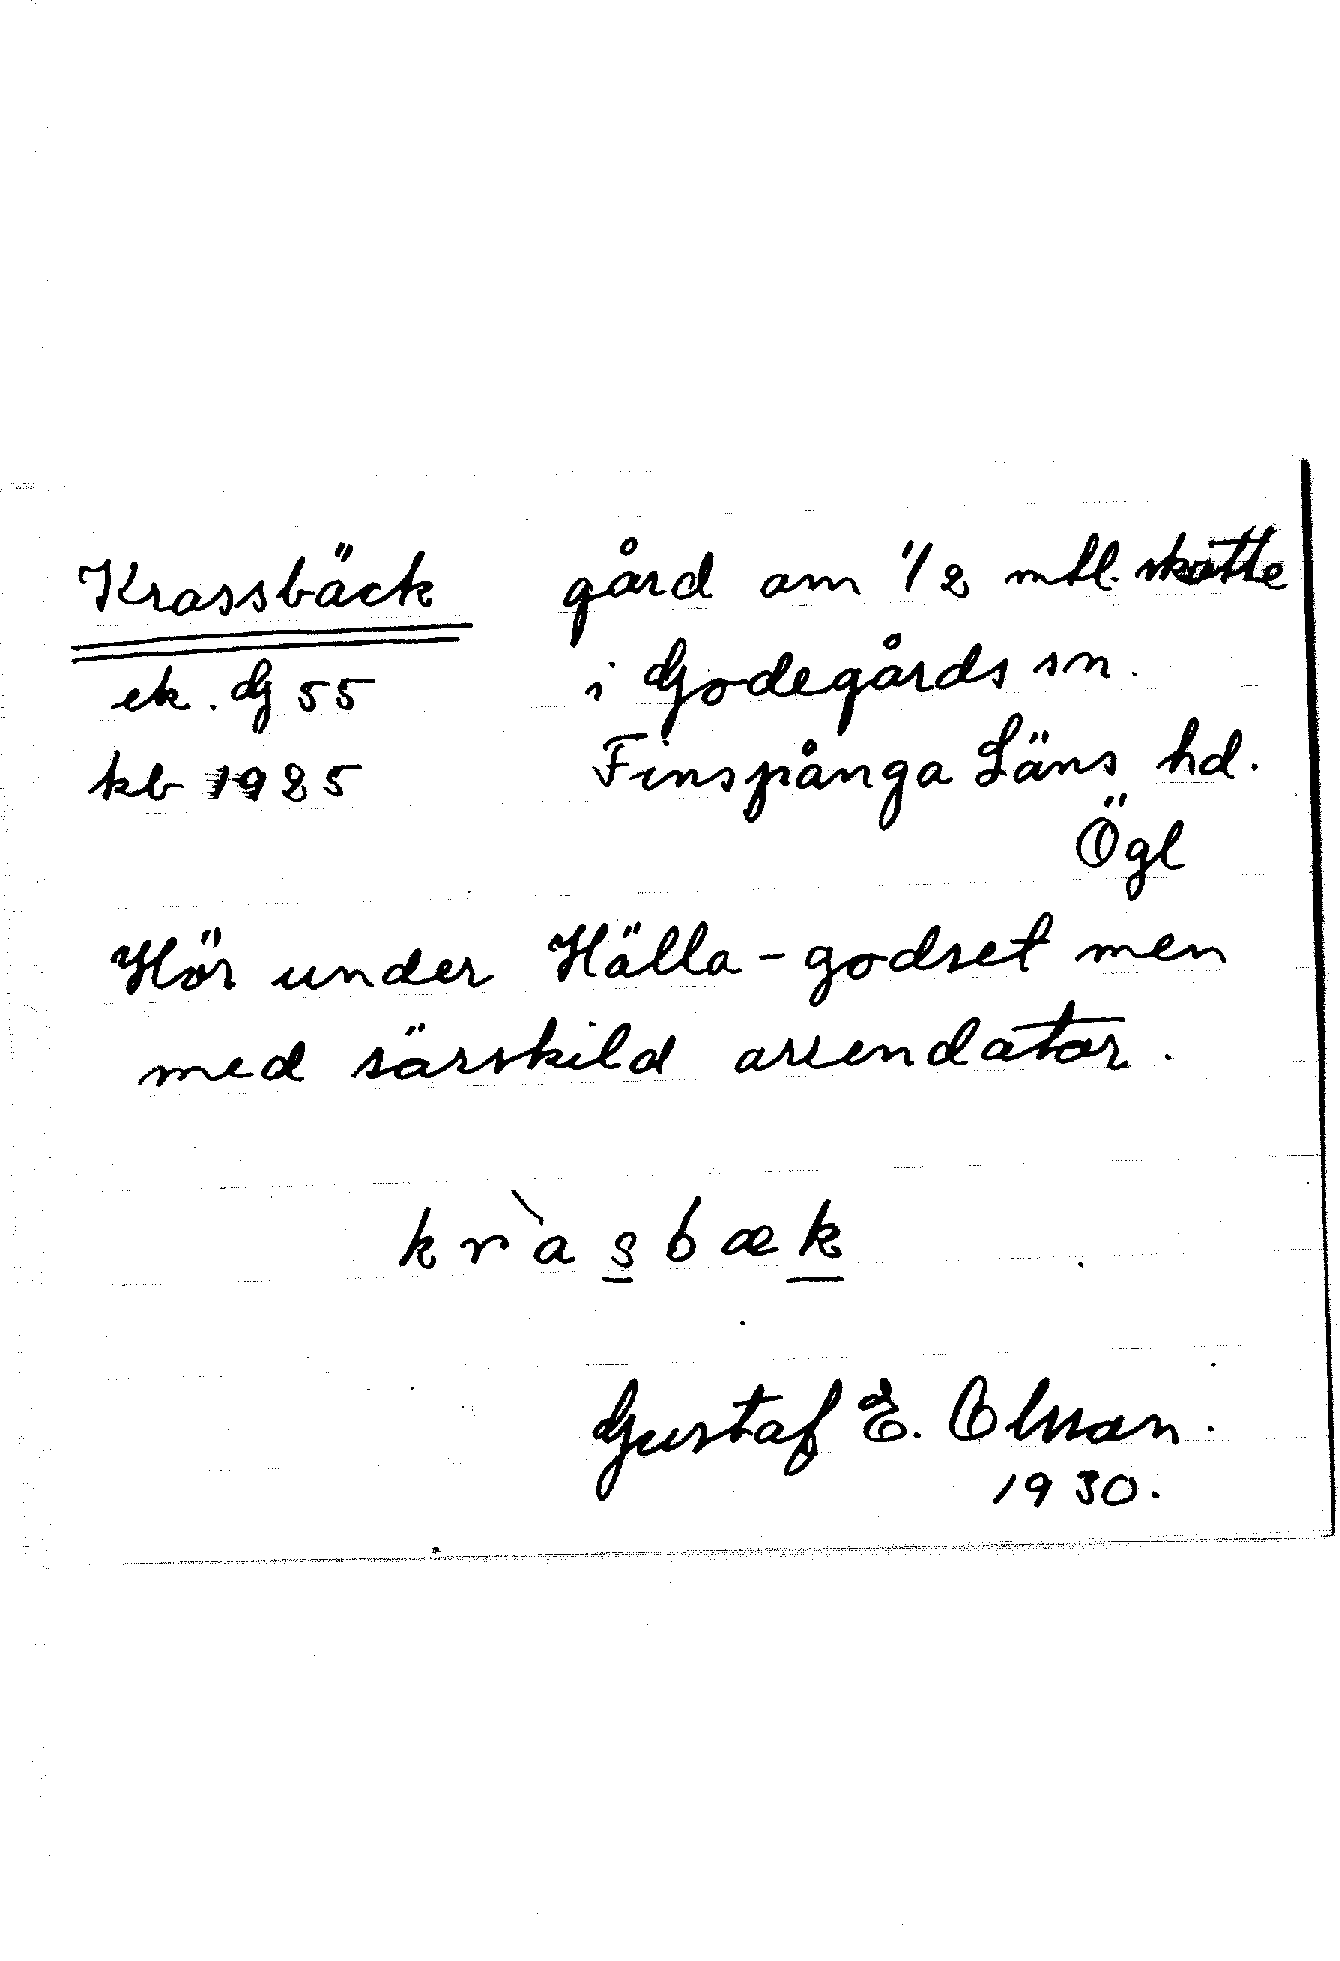 Krassbäck gård om 1/2 mtl. skatte
ek. G 55 i Godegårds sn.
kb 1925 Finspånga Läns hd.
Ögl
Hör under Hälla-godset men
med särskild arrendator.
kràsbæk
Gustaf E. Olsson.
1930.